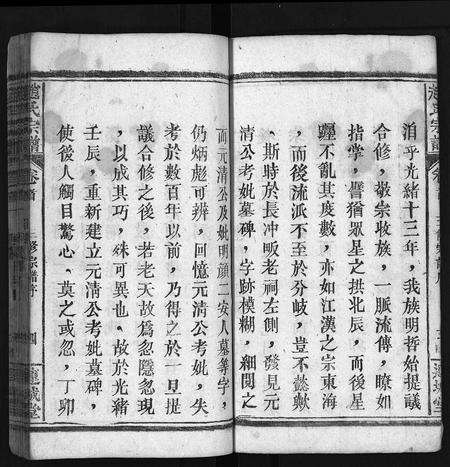 洎乎光緒十三年，我族明哲始提議
合修，敬宗收族，一脈流傳，瞭如
指掌，譬猶眾星之拱北辰，而後星
躔不亂其度數，亦如江漢之宗東海
，而後流派不至於分岐，豈不懿歟
、斯時於長冲畈老祠左側，發見元
清公考妣墓碑，字跡模糊，細閱之
而元清公及妣明顏二安人墓等字，
仍炳彪可辨，回憶元清公考妣，失
考於數百年以前，乃得之於一旦提
議合修之後，若老天故為忽隱忽現
，以成其巧，殊可異也，故於光緒
壬辰，重新建立元清公考妣墓碑，
使後人觸目驚心、莫之或忽，丁卯
趙氏宗譜 卷首 三修宗譜序 四 達城堂